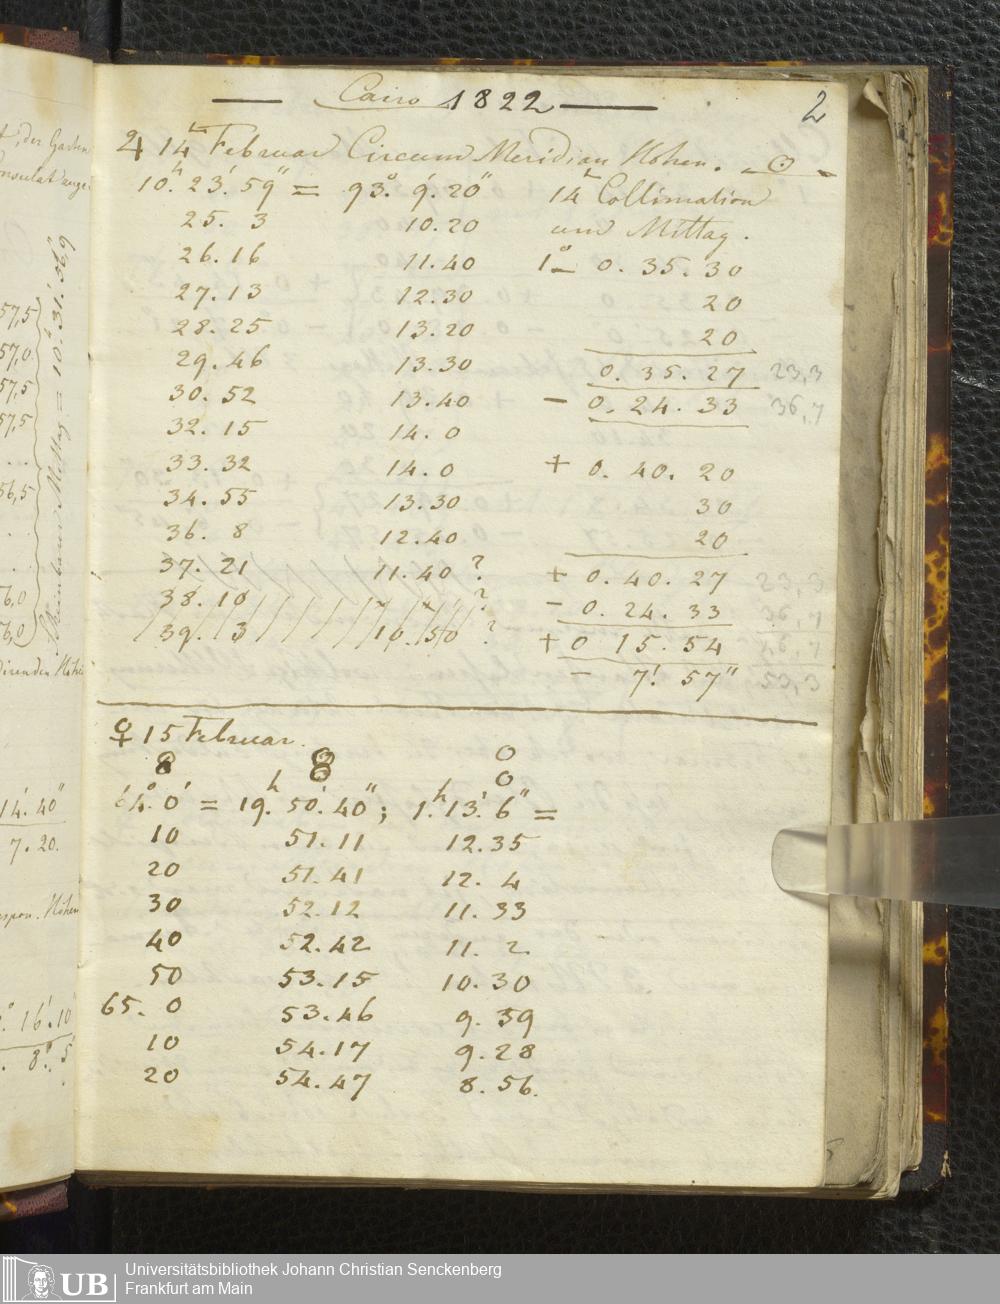 Cairo 1822
2
♃ 14t Februar Circum Meridian Höhen. ☉
10h. 23'. 59" = 93°. 9'. 20"
25. 3 10. 20
26. 16 11. 40
27. 13 12. 30
28. 25 13. 20
29. 46 13. 30
30. 52 13. 40
32. 15 14. 0
33. 32 14. 0
34. 55 13. 30
36. 8 12. 40
37. 21 11. 40 ?
38. 10 ?
39. 13 10. 50 ?
14t Collimation
um Mittag.
1° – 0. 35. 30
20
20
0. 35. 27 23,3
– 0. 24. 33 36,7
+ 0. 40. 20
30
20
+ 0. 40. 27 23,3
– 0. 24. 33 36,7
+ 0 15. 54
– 7'. 57" 53,3
♀ 15 Februar.
64°. 0' = 19h. 50'. 40"; 1h. 13'. 6" =
10 51. 11 12. 35
20 51. 41 12. 4
30 52. 12 11. 33
40 52. 42 11. 2
50 53. 15 10. 30
65. 0 53. 46 9. 59
10 54. 17 9. 28
20 54. 47 8. 56.
der Garten
57,5
57,0
57,5
57,5
56,5
76,0
76,0
Mittag = 10h. 31'. 56",9
14'. 40"
7. 20.
Höhen
16'. 10"
8'. 5"
UB
Universitätsbibliothek Johann Christian Senckenberg
Frankfurt am Main